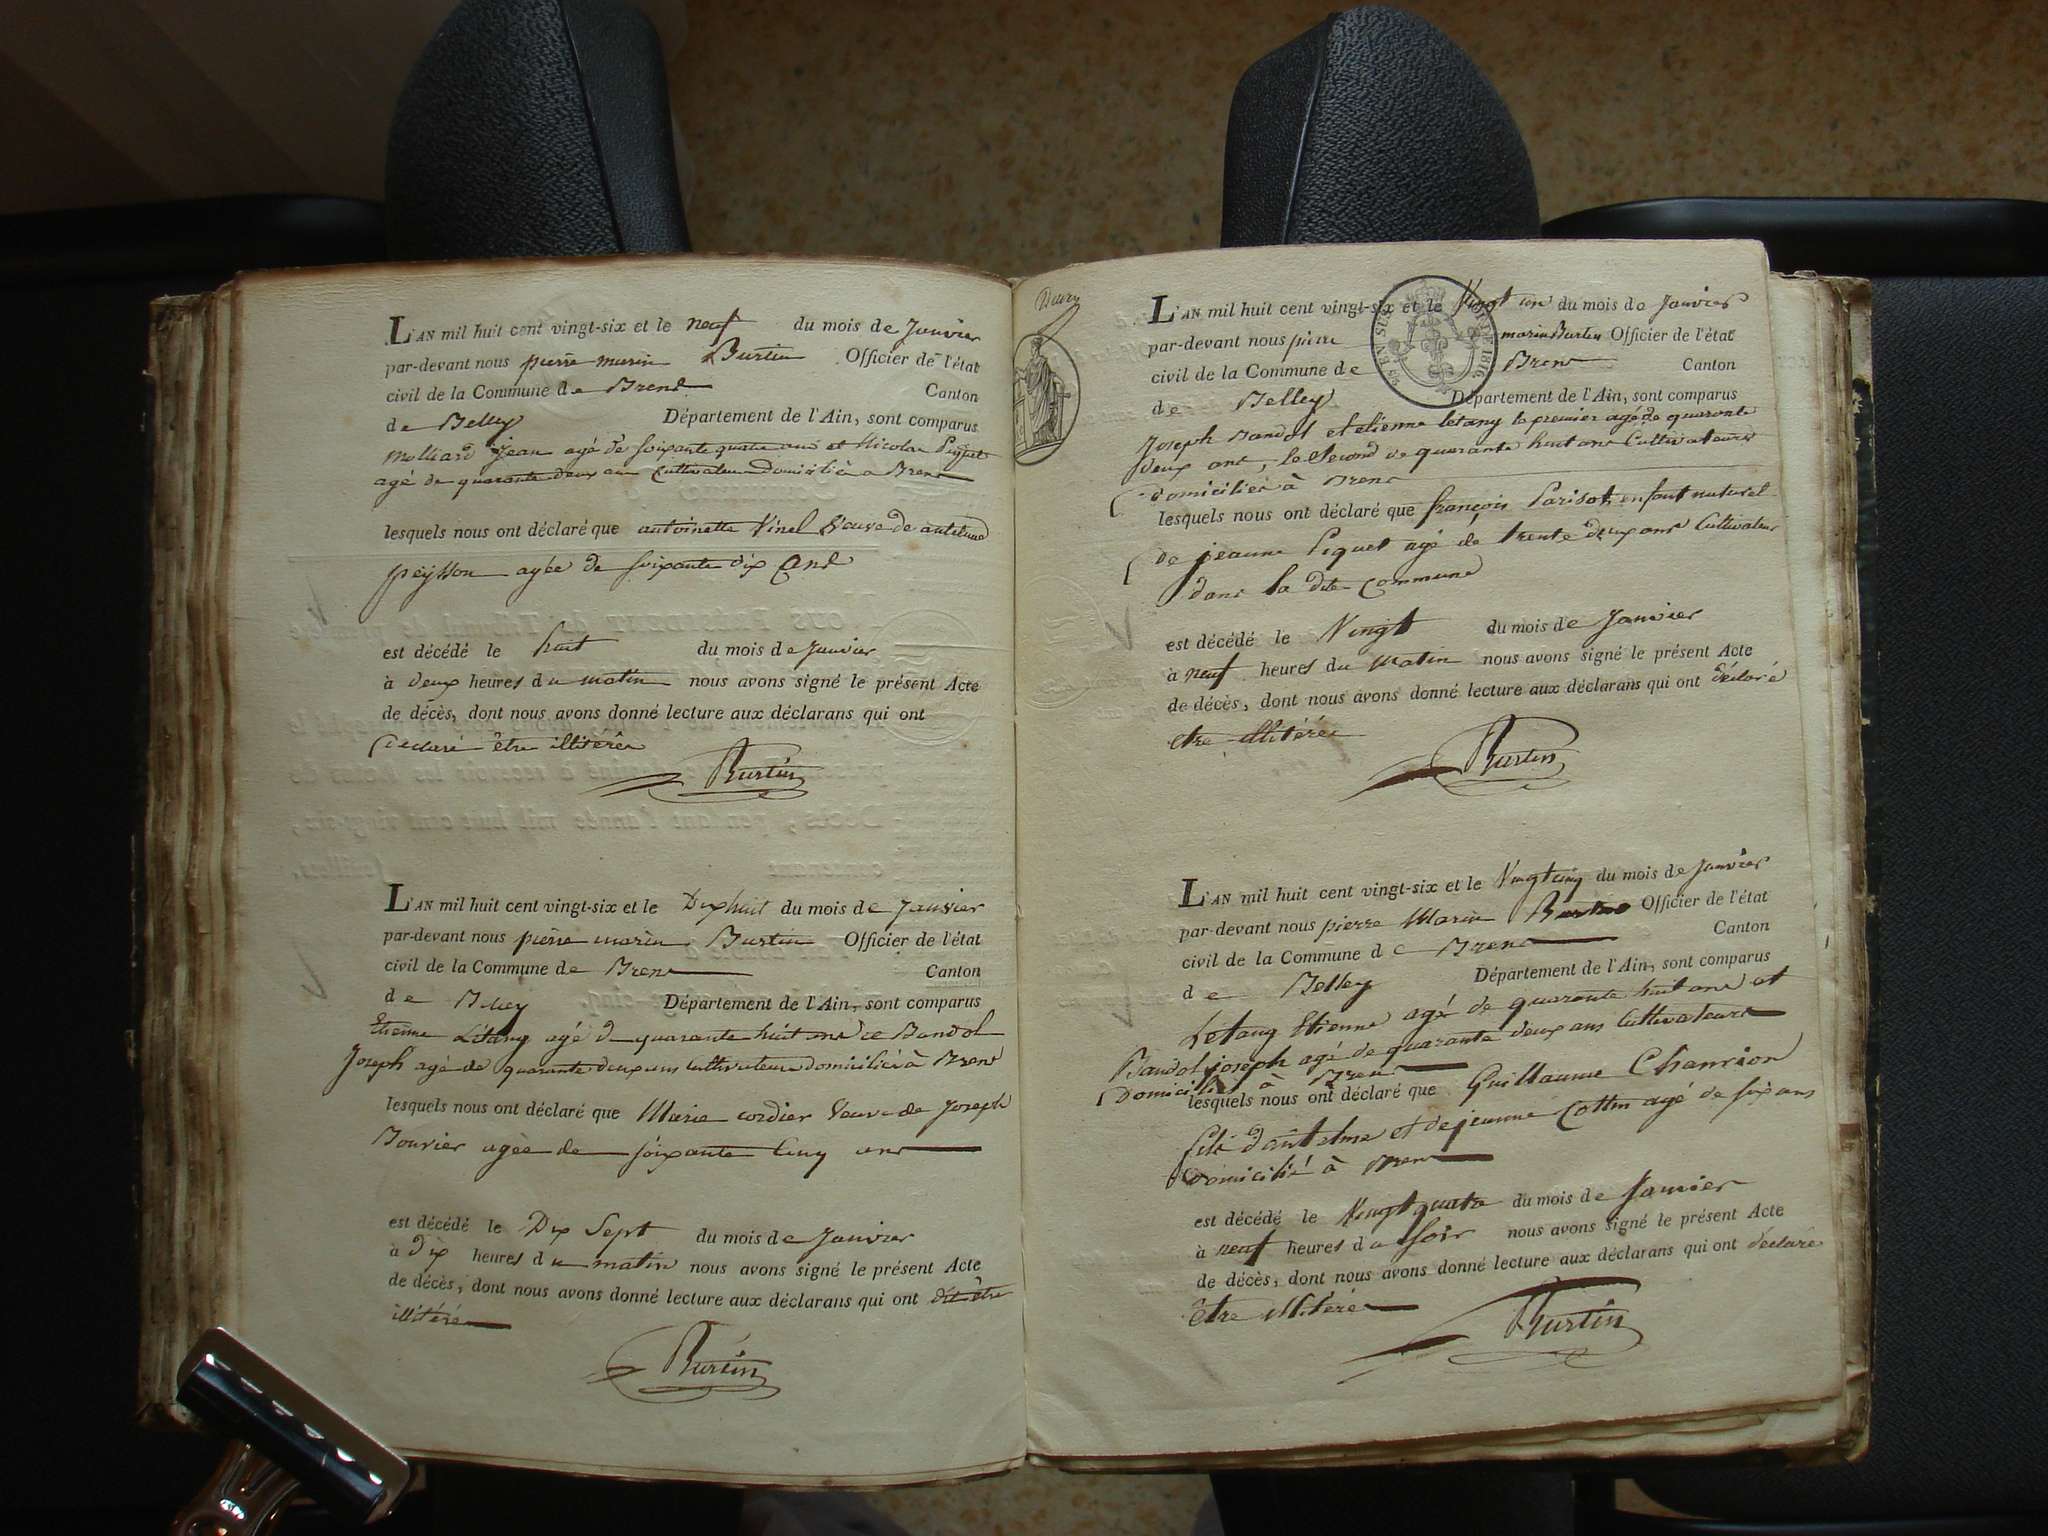 L'AN mil huit cent vingt-six et le neuf du mois de Janvier
par-devant nous pierre marin Burtin Officier de l'état
civil de la Commune de Brens
Canton
de Belley Département de l'Ain, sont comparus
Molliard jean agé de soixante quatre ans et Nicolas Piquet
agé de quarante deux ans Cultivateurs domiciliés a Brens
lesquels nous ont déclaré que antoinette Vinel Veuve de antelme
peysson agée de soixante dix Ans
est décédé le huit du mois de Janvier
à deux heures du matin nous avons signé le présent Acte
de décès, dont nous avons donné lecture aux déclarans qui ont
declaré être illitérés
Burtin
L'AN mil huit cent vingt-six et le Dix huit du mois de Janvier
par-devant nous pierre marin Burtin Officier de l'état
civil de la Commune de Brens
Canton
de Belley Département de l'Ain, sont comparus
Etienne Létang agé de quarante huit ans et Bandol
Joseph agé de quarante deux ans cultivateurs domiciliés à Brens
lesquels nous ont déclaré que Marie cordier Veuve de Joseph
Bouvier agée de soixante Cinq ans
est décédé le Dix Sept du mois de Janvier
à Dix heures du matin nous avons signé le présent Acte
de décès, dont nous avons donné lecture aux déclarans qui ont dit être
illitérés
Burtin
L'AN mil huit cent vingt-six et le Vingt un du mois de Janvier
par-devant nous pierre marin Burtin Officier de l'état
civil de la Commune de Brens Canton
de Belley Département de l'Ain, sont comparus
Joseph Bandol et etienne letang le premier agé de quarante
deux ans, le Second de quarante huit ans Cultivateurs
domiciliés à Brens
lesquels nous ont déclaré que françois Parisot, enfant naturel
de jeanne Piquet agé de trente deux ans Cultivateur
dans la dite Commune
est décédé le Vingt du mois de Janvier
à neuf heures du matin nous avons signé le présent Acte
de décès, dont nous avons donné lecture aux déclarans qui ont déclaré
etre illitérés
Burtin
L'AN mil huit cent vingt-six et le Vingt cinq du mois de Janvier
par-devant nous pierre Marin Burtin Officier de l'état
civil de la Commune de Brens Canton
de Belley Département de l'Ain, sont comparus
Letang Etienne agé de quarante huit ans et
Bandol joseph agé de quarante deux ans Cultivateurs
Domiciliés à Brens
lesquels nous ont déclaré que Guillaume Chanrion
fils d'antelme et de jeanne Cottin agé de six ans
Domicilié à Brens
est décédé le Vingt quatre du mois de Janvier
à neuf heures du soir nous avons signé le présent Acte
de décès, dont nous avons donné lecture aux déclarans qui ont déclaré
être illitérés
Burtin